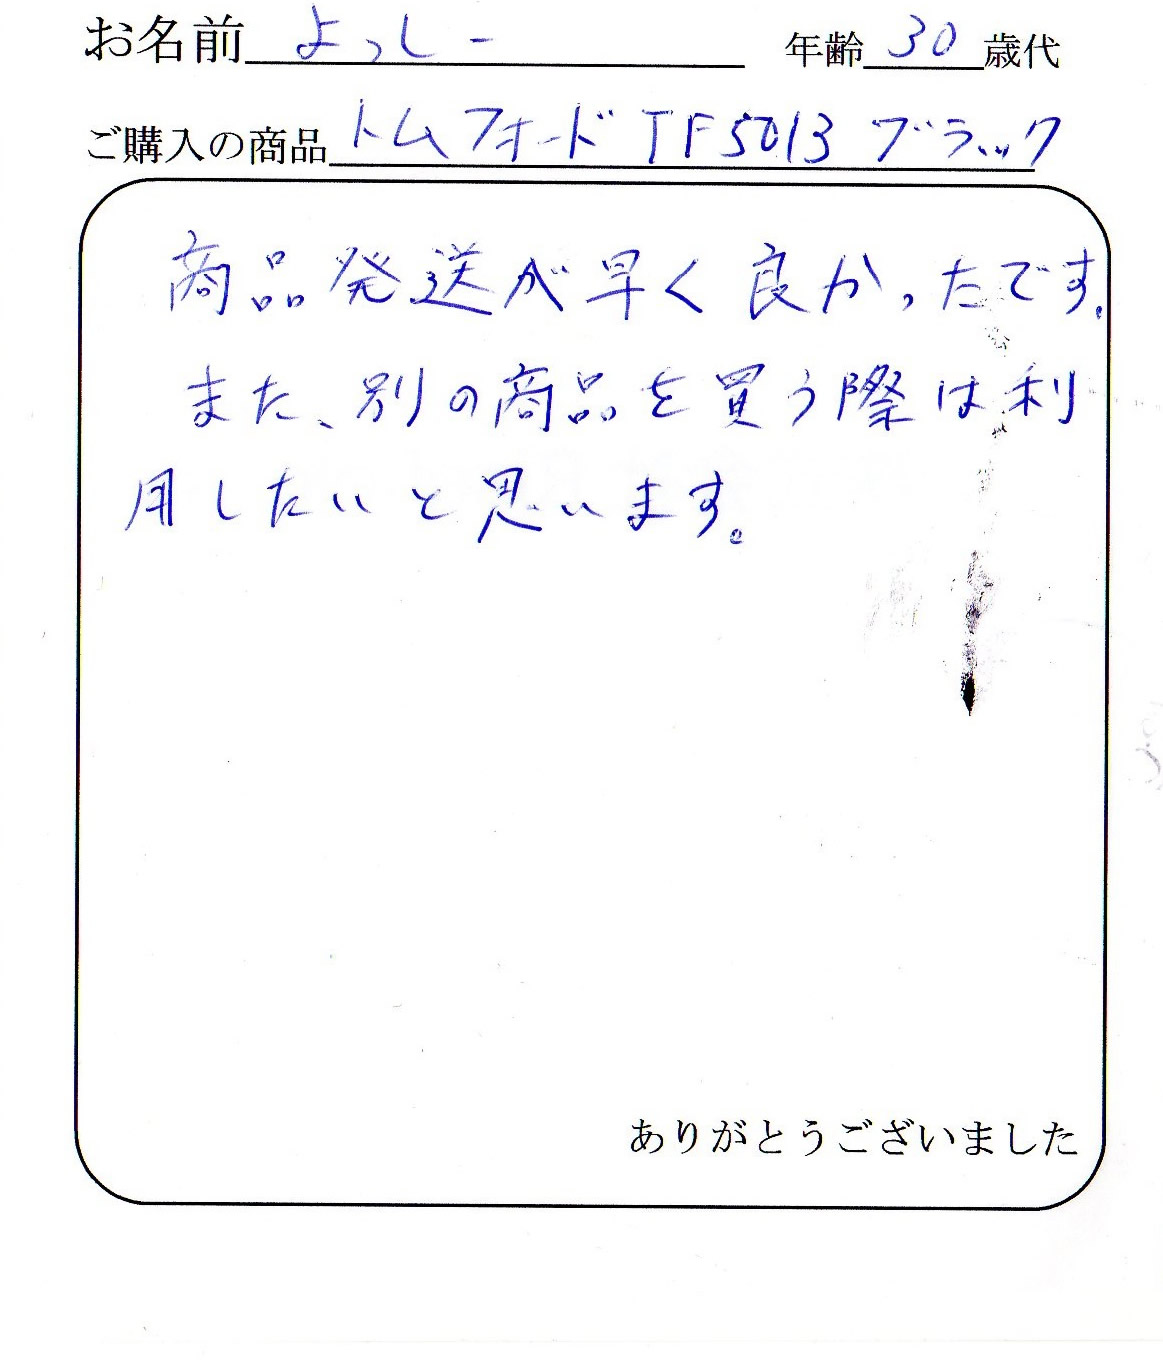 お名前 よっしー 年齢 30 歳代
ご購入の商品 トムフォード TF5013 ブラック
商品発送が早く良かったです。
また、別の商品を買う際は利
用したいと思います。
ありがとうございました